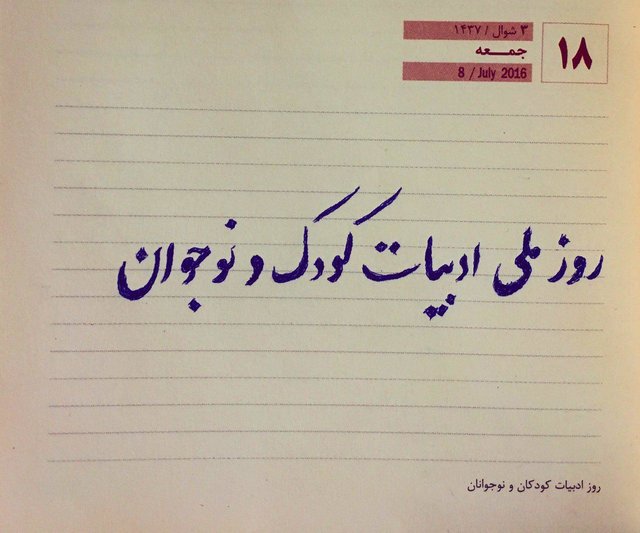 ۱۸
۳ شوال / ۱۴۳۷
جمعه
8 / July 2016
روز ملی ادبیات کودک و نوجوان
روز ادبیات کودکان و نوجوانان